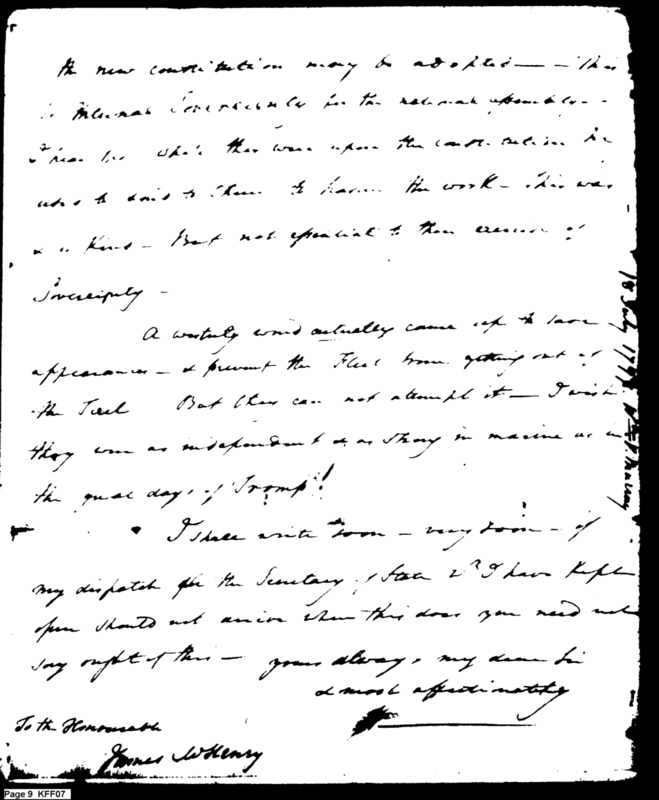 the new constitution may be adopted — - This
is internal Sovereignty for the national assembly -
I hear he whilst they were upon the constitution he
used to to them to hasten the work - This was
& is Kind - But not essential to their exercise of
Sovereignty -
A westerly wind actually came up to save
appearances - & prevent the Fleet from getting out of
the Texel But they can not attempt it - I wish
they were as independent & as strong in marine as in
the great days of Tromp!
I shall write soon - very soon - if
my dispatch for the Secretary of State wh I have kept
open should not arrive when this does you need not
say ought of this - yours always my dear Sir
& most affectionately
To the Honourable
James McHenry
18 July 1797 Wm V. Murray
Page 9 KFF07